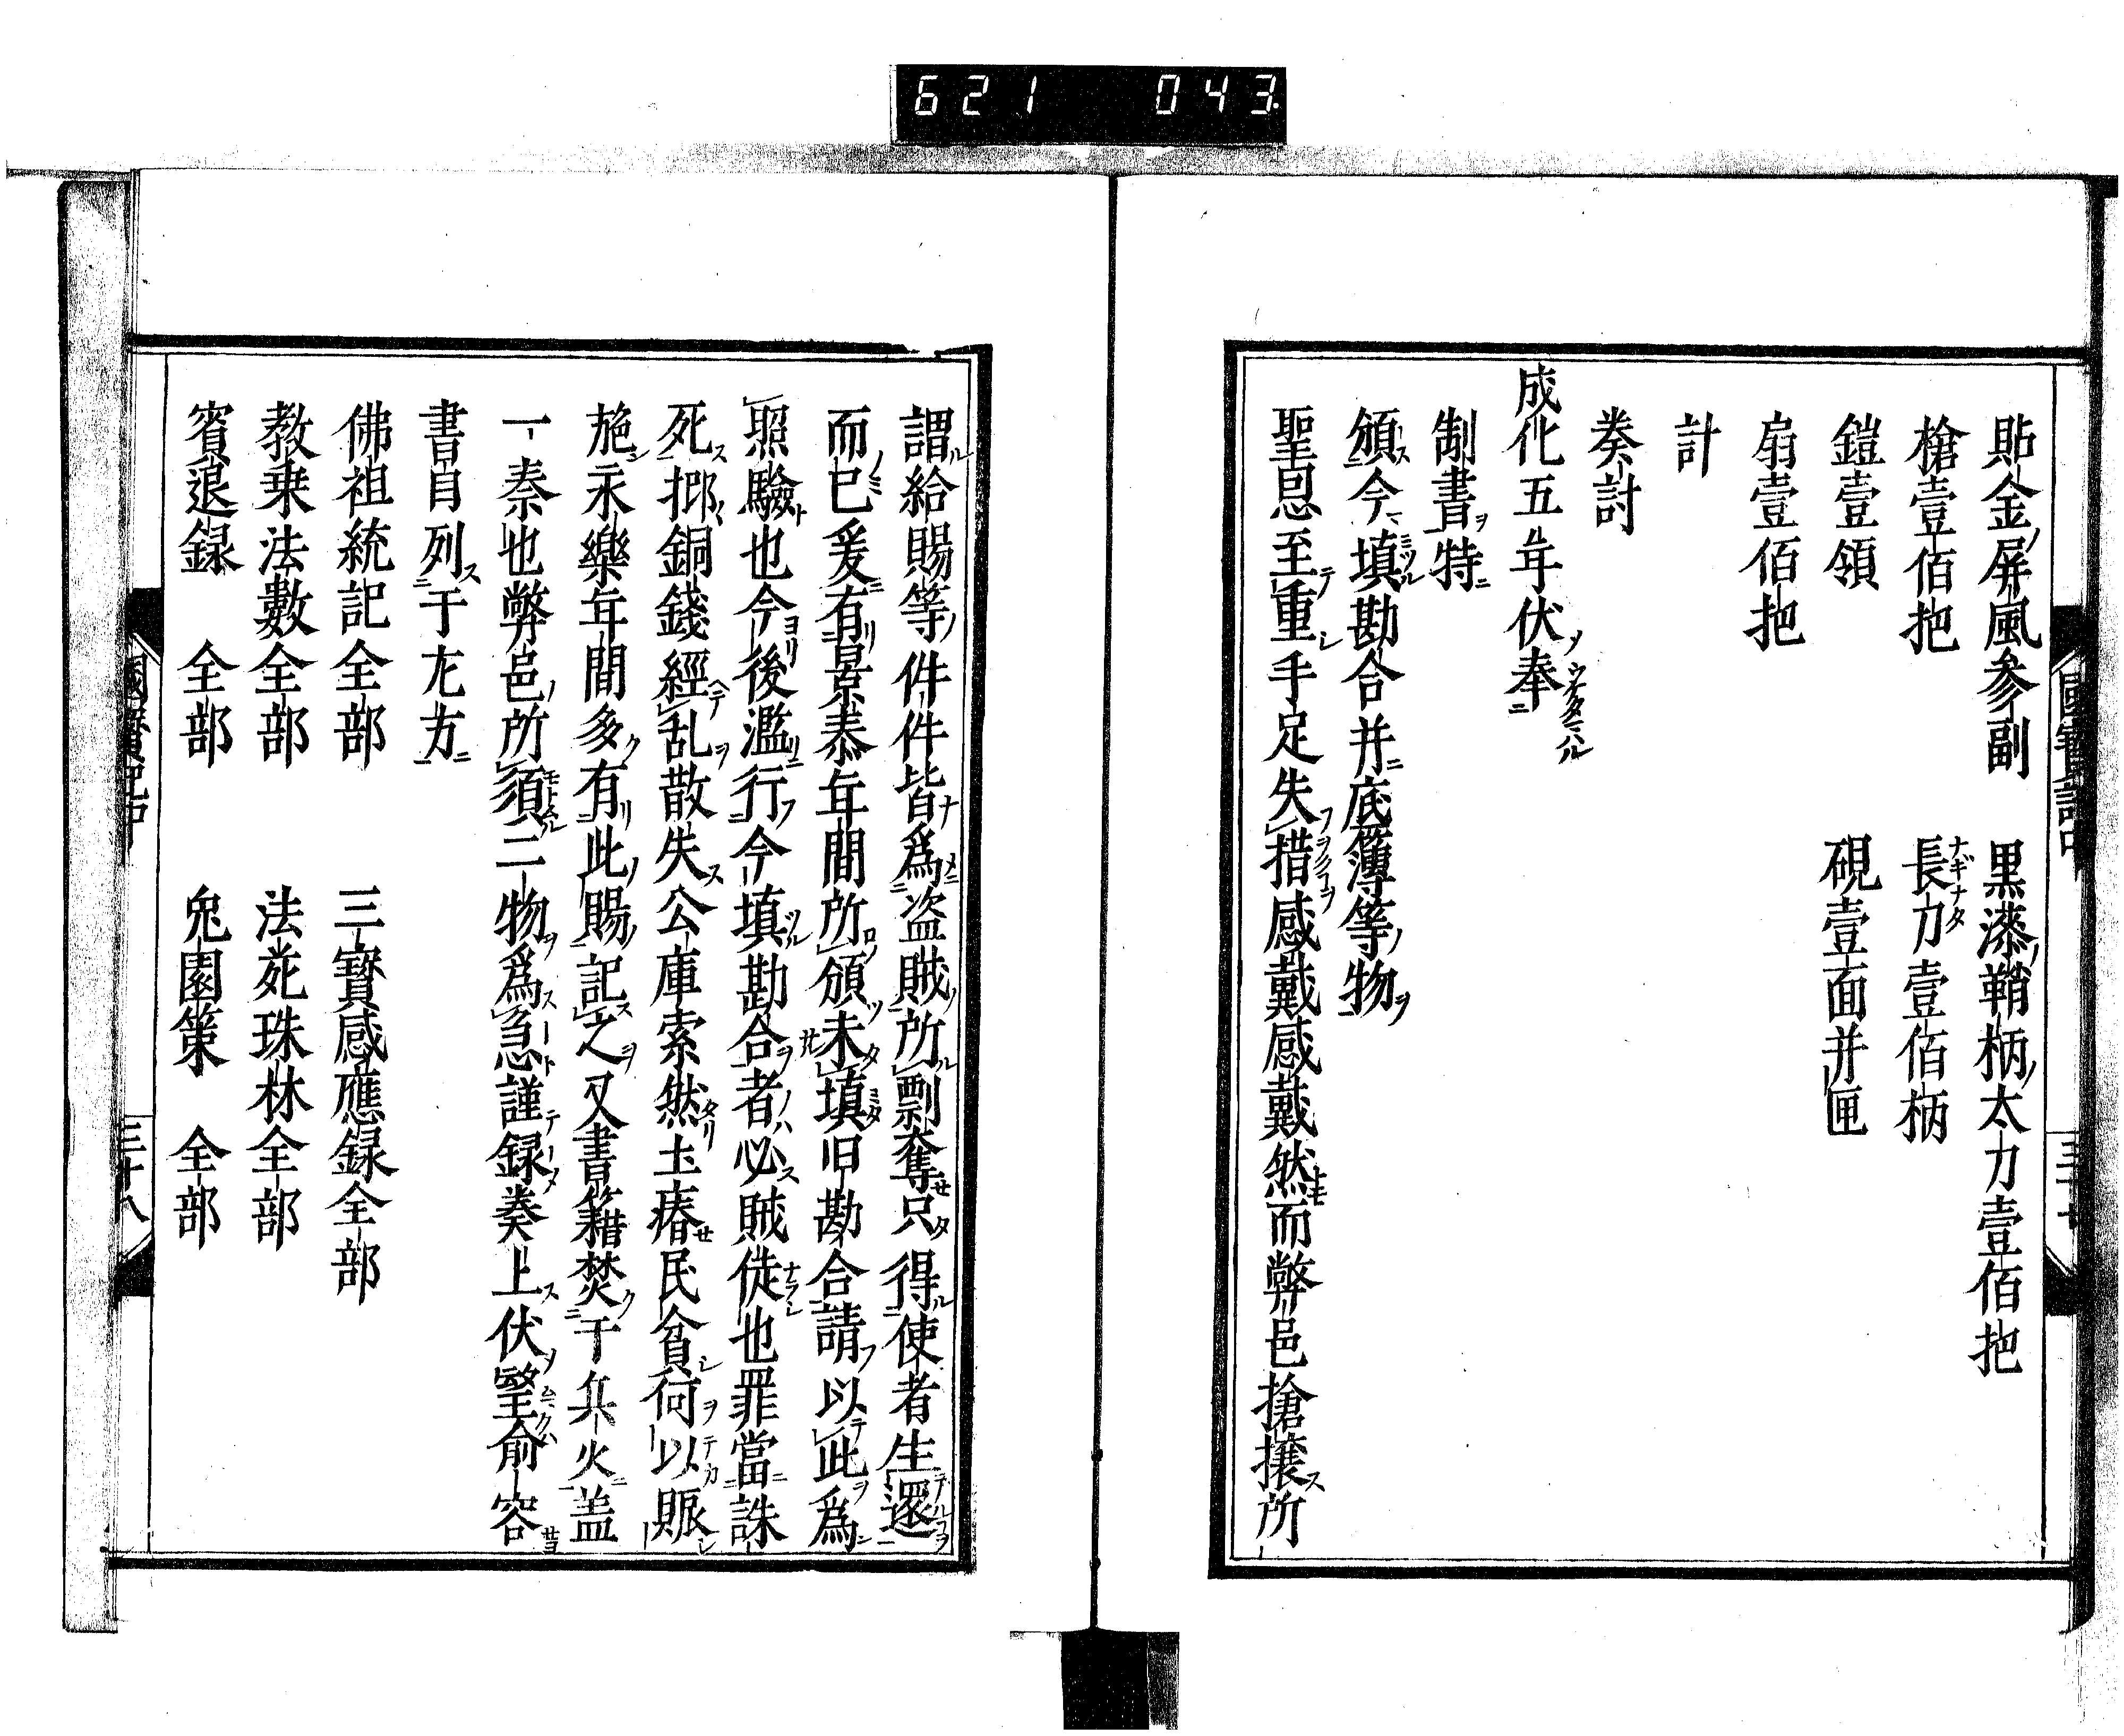 621 043
貼金屏風参副 黒漆鞘柄太刀壹佰把
槍壹佰把 長刀壹佰柄
鎧壹領 硯壹面并匣
扇壹佰把
計
奏討
成化五年伏奉
制書特
頒今填勘合并底簿等物
聖恩至重手足失措感戴感戴然而弊邑搶攘所
謂給賜等件件皆為盗賊所剽奪只得使者生還
而已爰有景泰年間所頒未填旧勘合請以此為
照驗也今後濫行今填勘合者必賊徒也罪當誅
死抑銅錢經乱散失公庫索然土瘠民貧何以賑
施永樂年間多有此賜記之又書籍焚于兵火盖
一秦也弊邑所須二物為急謹録奏上伏望俞容
書目列于左方
佛祖統記全部 三寶感應録全部
教乗法數全部 法苑珠林全部
賓退録 全部 兔園策 全部
三十八